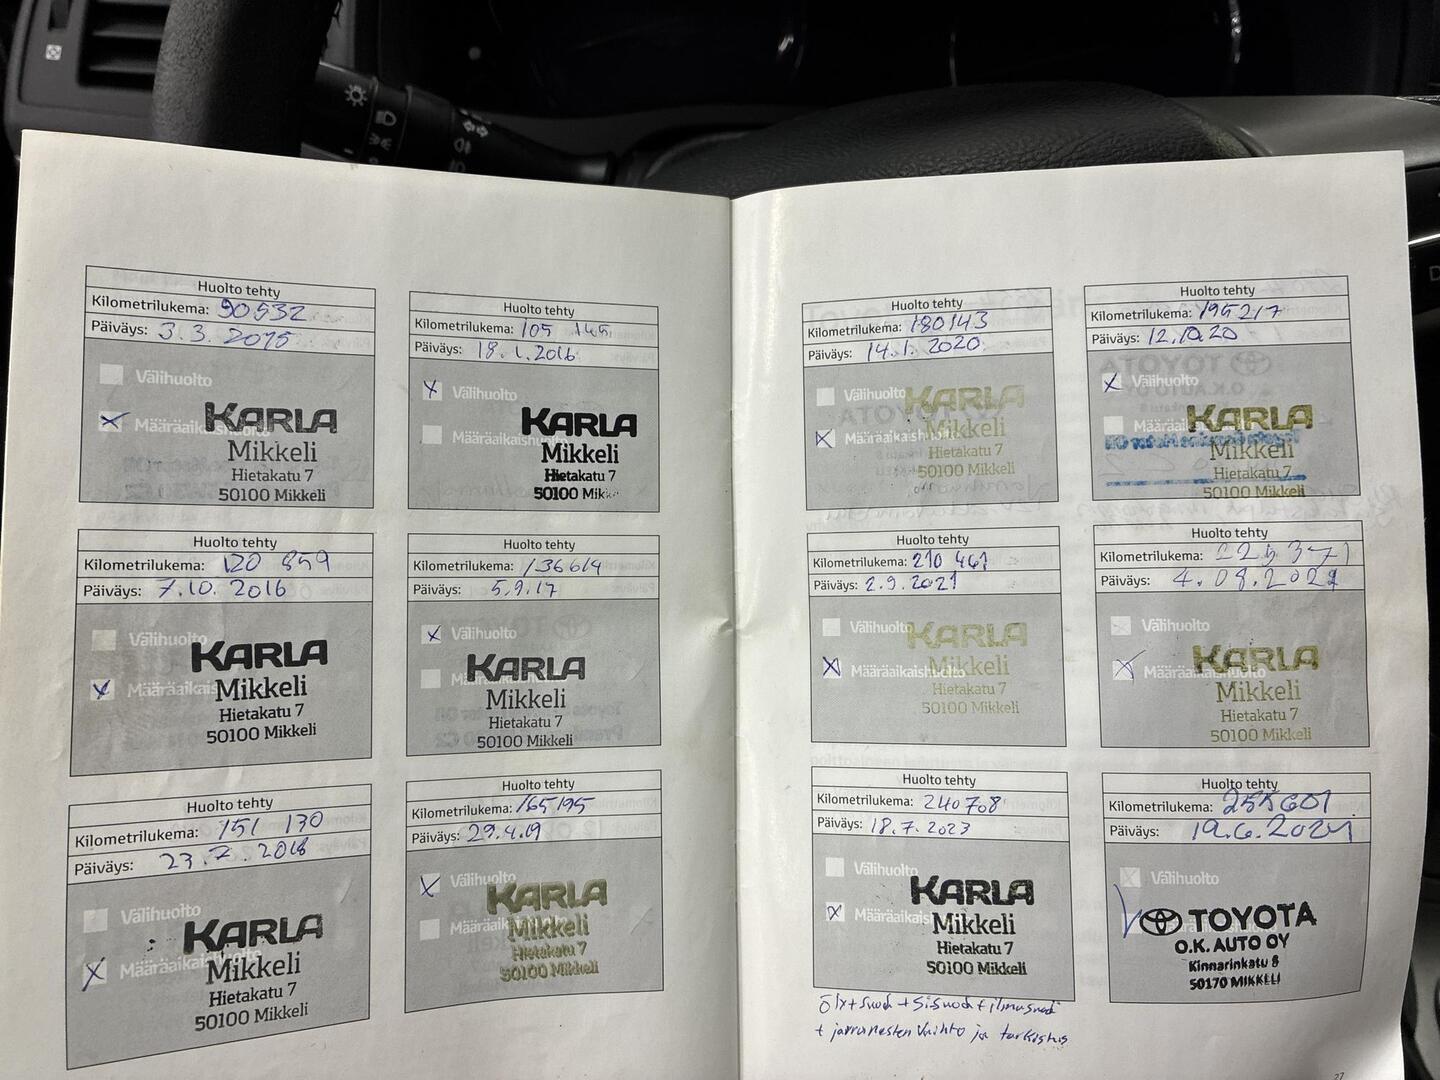 Huolto tehty
Kilometrilukema: 90532
Päiväys: 3.3.2015
Välihuolto
Määräaikaishuolto
KARLA
Mikkeli
Hietakatu 7
50100 Mikkeli
Huolto tehty
Kilometrilukema: 105 145
Päiväys: 18.1.2016
Välihuolto
Määräaikaishuolto
KARLA
Mikkeli
Hietakatu 7
50100 Mikkeli
Huolto tehty
Kilometrilukema: 120 859
Päiväys: 7.10.2016
Välihuolto
Määräaikaishuolto
KARLA
Mikkeli
Hietakatu 7
50100 Mikkeli
Huolto tehty
Kilometrilukema: 136614
Päiväys: 5.9.17
Välihuolto
Määräaikaishuolto
KARLA
Mikkeli
Hietakatu 7
50100 Mikkeli
Huolto tehty
Kilometrilukema: 151 130
Päiväys: 23.7.2018
Välihuolto
Määräaikaishuolto
KARLA
Mikkeli
Hietakatu 7
50100 Mikkeli
Huolto tehty
Kilometrilukema: 165195
Päiväys: 29.4.19
Välihuolto
Määräaikaishuolto
KARLA
Mikkeli
Hietakatu 7
50100 Mikkeli
Huolto tehty
Kilometrilukema: 180143
Päiväys: 14.1.2020
Välihuolto
Määräaikaishuolto
KARLA
Mikkeli
Hietakatu 7
50100 Mikkeli
Huolto tehty
Kilometrilukema: 195217
Päiväys: 12.10.20
Välihuolto
Määräaikaishuolto
KARLA
Mikkeli
Hietakatu 7
50100 Mikkeli
Huolto tehty
Kilometrilukema: 210 461
Päiväys: 2.9.2021
Välihuolto
Määräaikaishuolto
KARLA
Mikkeli
Hietakatu 7
50100 Mikkeli
Huolto tehty
Kilometrilukema: 225371
Päiväys:
Välihuolto
Määräaikaishuolto
KARLA
Mikkeli
Hietakatu 7
50100 Mikkeli
Huolto tehty
Kilometrilukema: 240708
Päiväys: 18.7.2023
Välihuolto
Määräaikaishuolto
KARLA
Mikkeli
Hietakatu 7
50100 Mikkeli
Öly+suod+sis.suod+ilmasuod
+ jarrunesten vaihto ja tarkastus
Huolto tehty
Kilometrilukema: 255601
Päiväys: 19.6.2024
Välihuolto
TOYOTA
O.K. AUTO OY
Kinnarinkatu 8
50170 MIKKELI
27